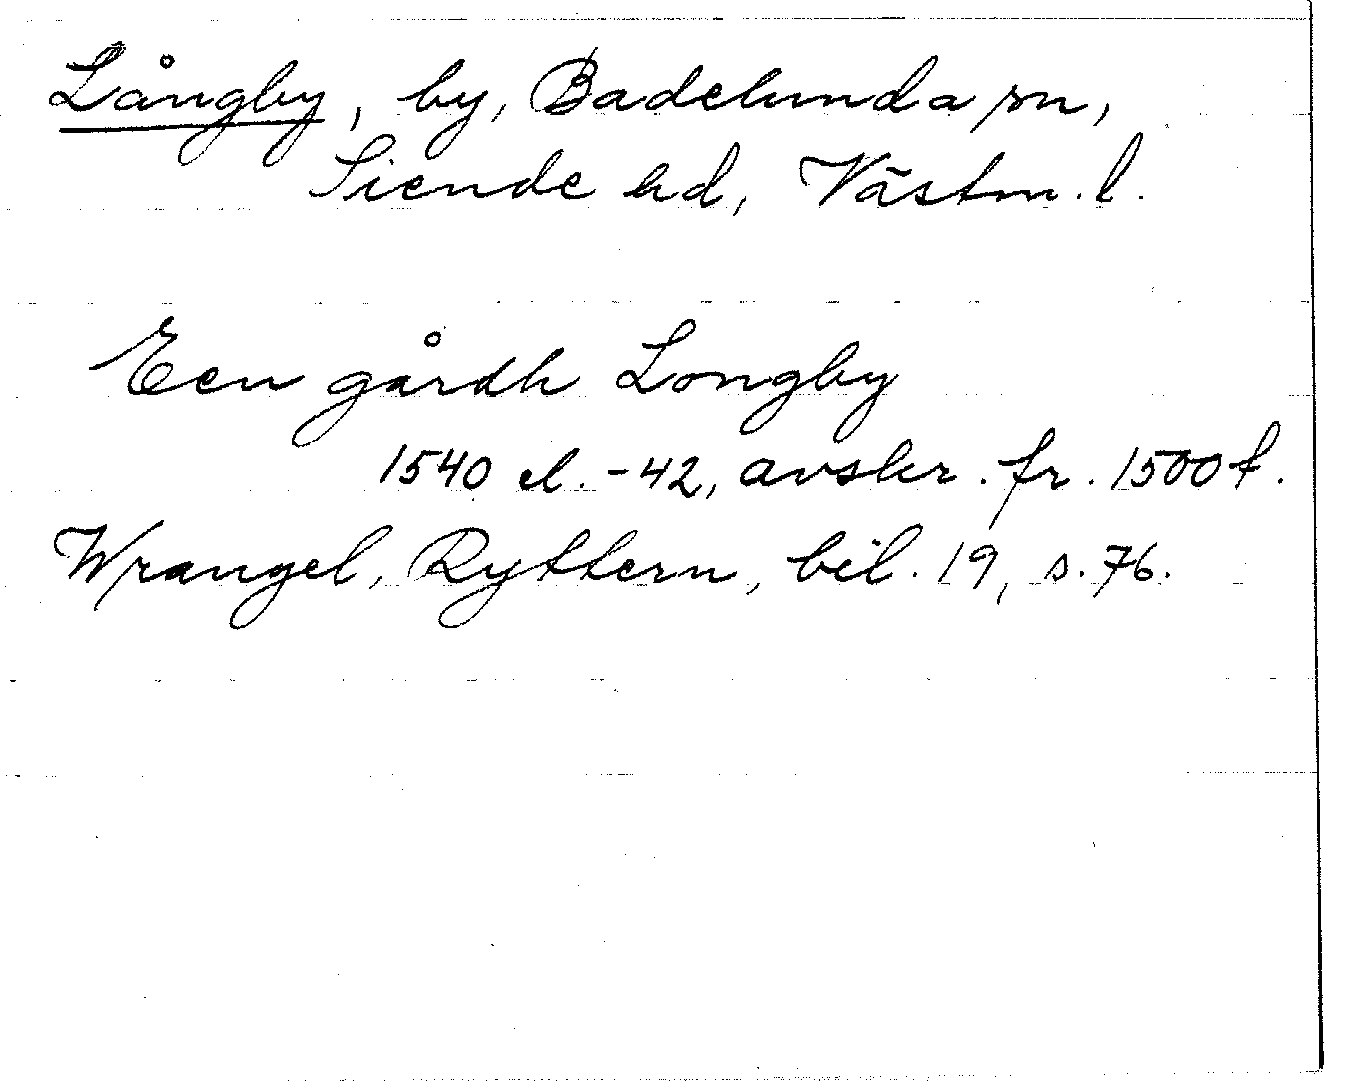 Långby, by, Badelunda sn,
Siende hd, Västm. l.
Een gårdh Longby
1540 el. -42, avskr. fr. 1500 t.
Wrangel, Ryttern, bil. 19, s. 76.